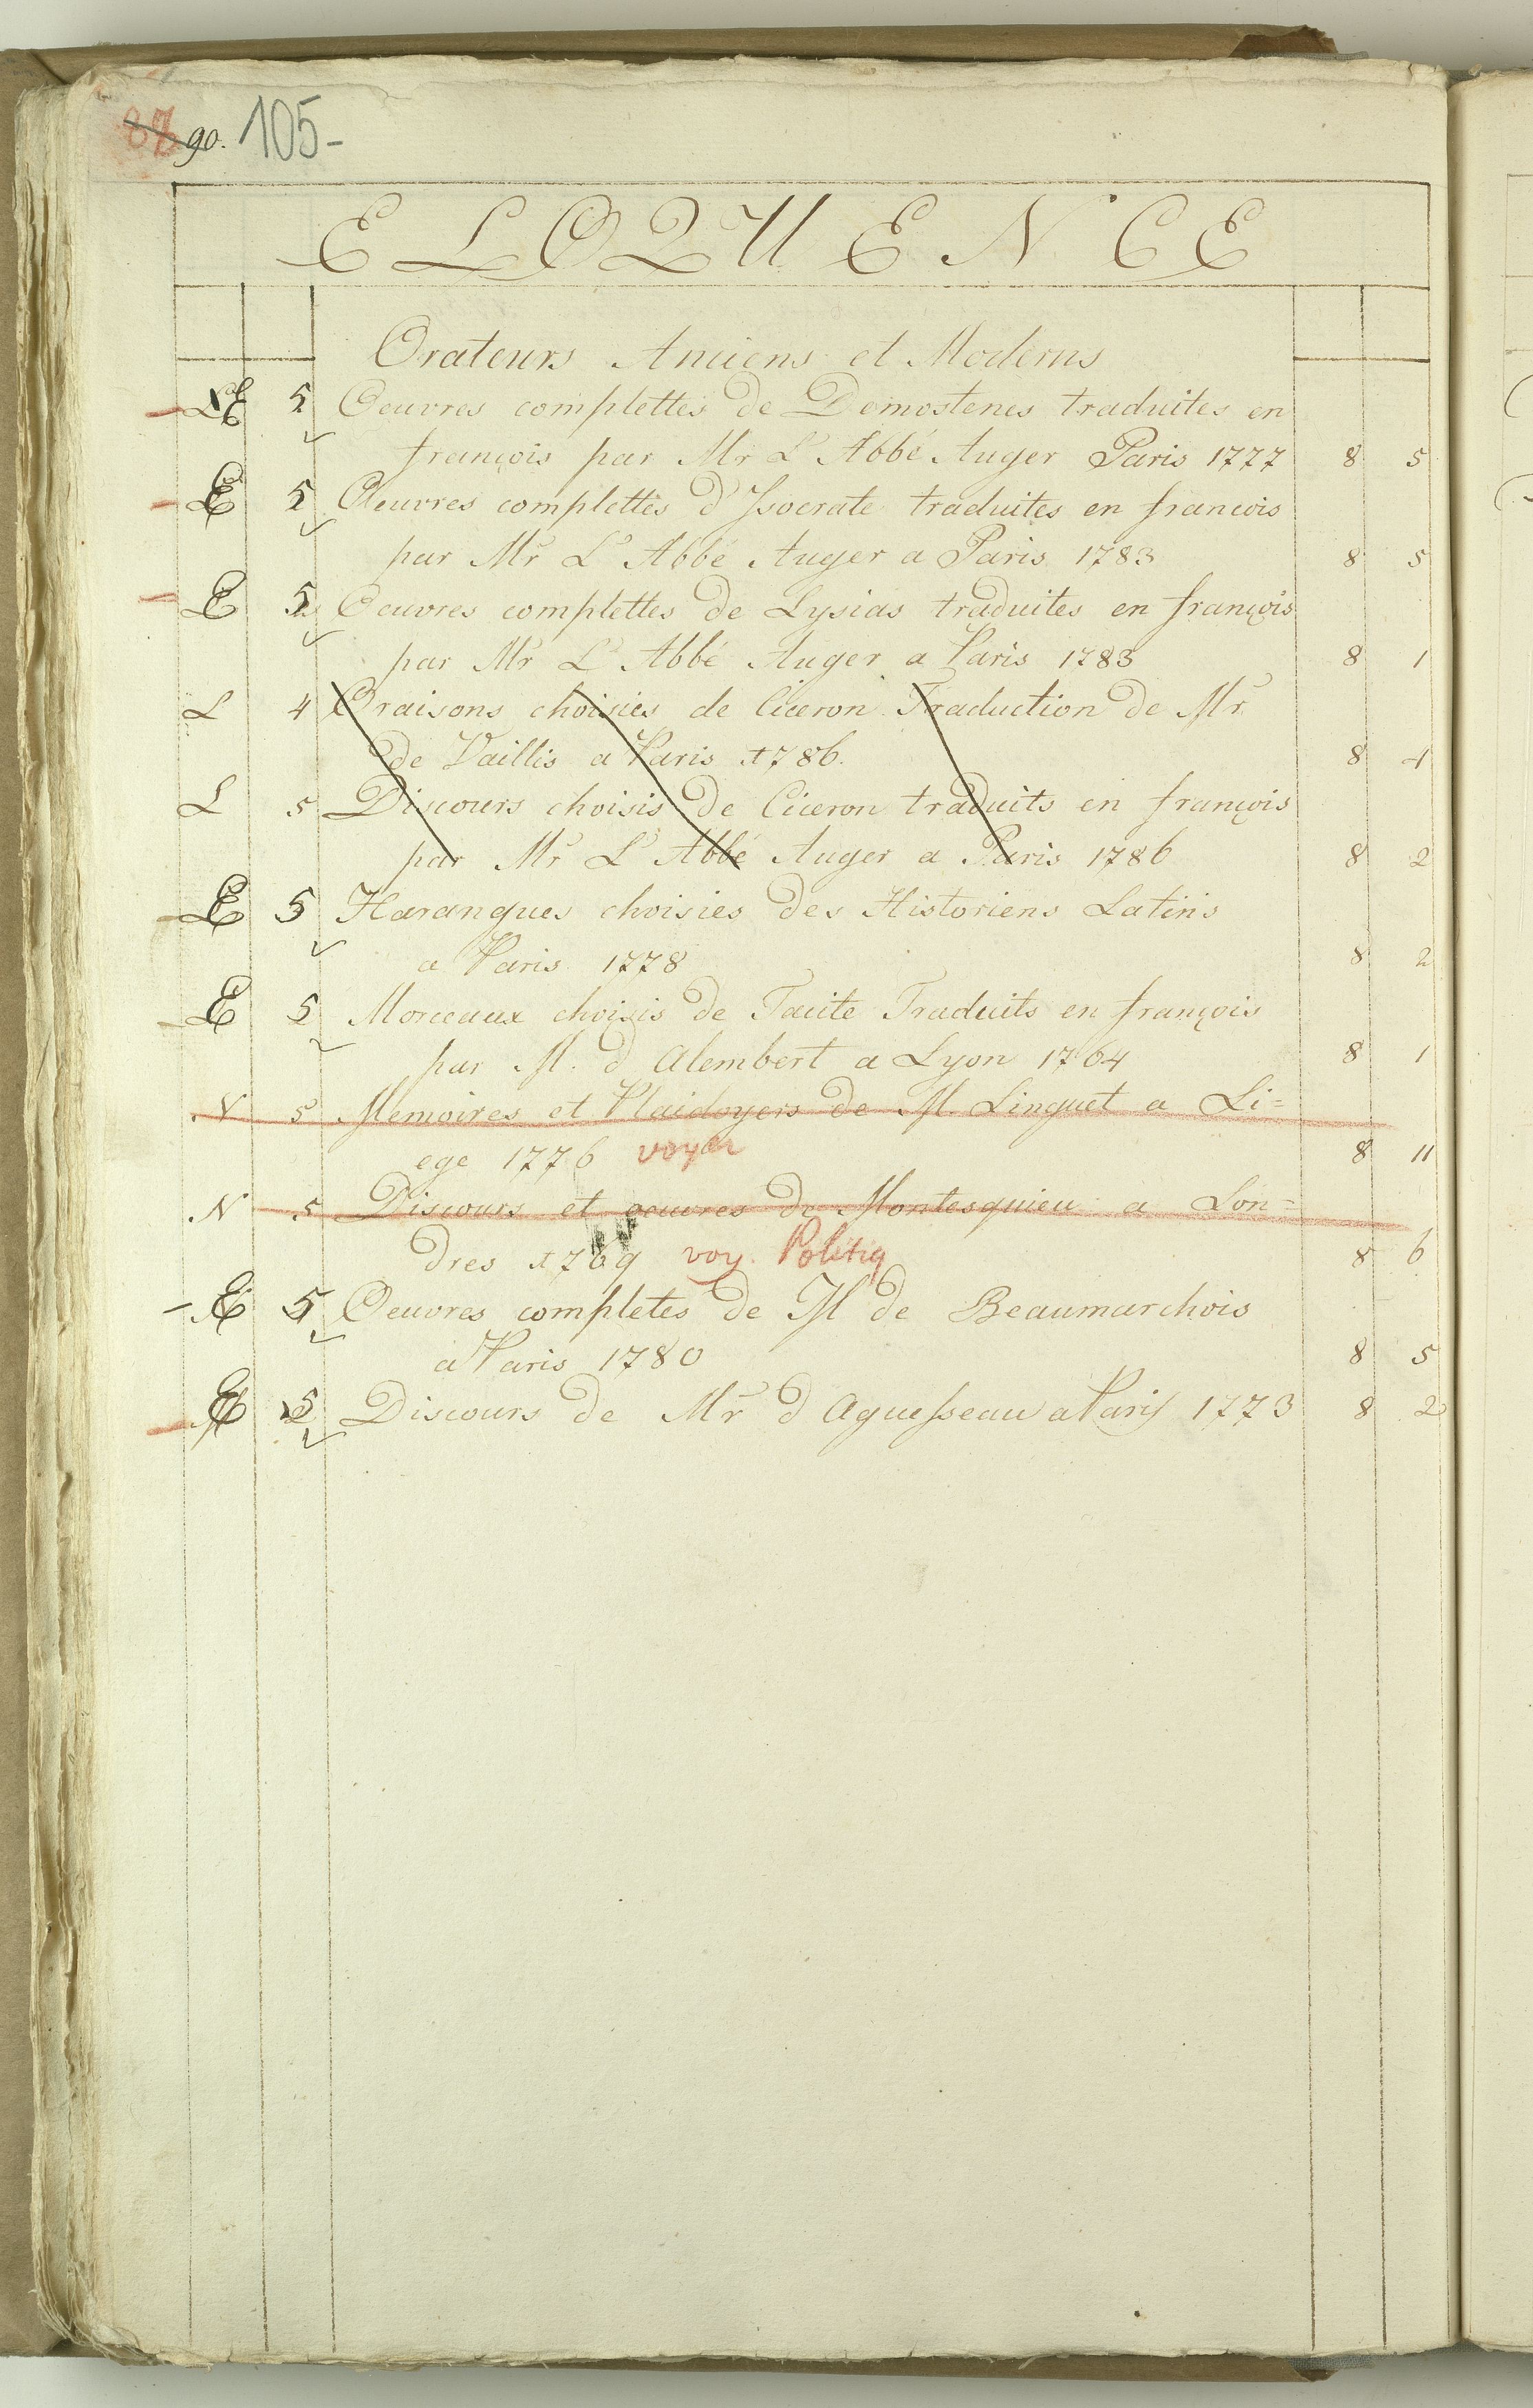 87 90. 105-
ELOQUENCE
Orateurs Anciens et Moderns
E 5 Oeuvres complettes de Demostenes traduites en
françois par Mr L'Abbé Auger Paris 1777 8 5
E 5 Oeuvres complettes d'Isocrate traduites en francois
par Mr L'Abbé Auger a Paris 1783 8 5
E 5 Oeuvres complettes de Lysias traduites en françois
par Mr L'Abbé Auger a Paris 1783 8 1
L 4 Oraisons choisies de Ciceron Traduction de Mr
de Vaillis a Paris 1786. 8 4
L 5 Discours choisis de Ciceron traduits en françois
par Mr L'Abbé Auger a Paris 1786 8 2
E 5 Harangues choisies des Historiens Latins
a Paris 1778 8 2
E 5 Morceaux choisis de Tacite Traduits en françois
par M. d'Alembert a Lyon 1764 8 1
N 5 Memoires et Plaidoyers de M. Linguet a Li=
ege 1776 voyer 8 11
N 5 Discours et oeuvres de Montesquieu a Lon=
dres 1769 voy. Politiq 8 6
E 5 Oeuvres completes de M de Beaumarchois
a Paris 1780 8 5
E 5 Discours de Mr d'Aguesseau a Paris 1773 8 2